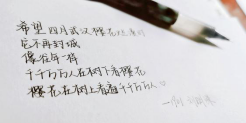 希望四月武汉樱花绽放时
它不再封城
像每年一样
千千万万人在树下看樱花
樱花在树上看着千千万万人